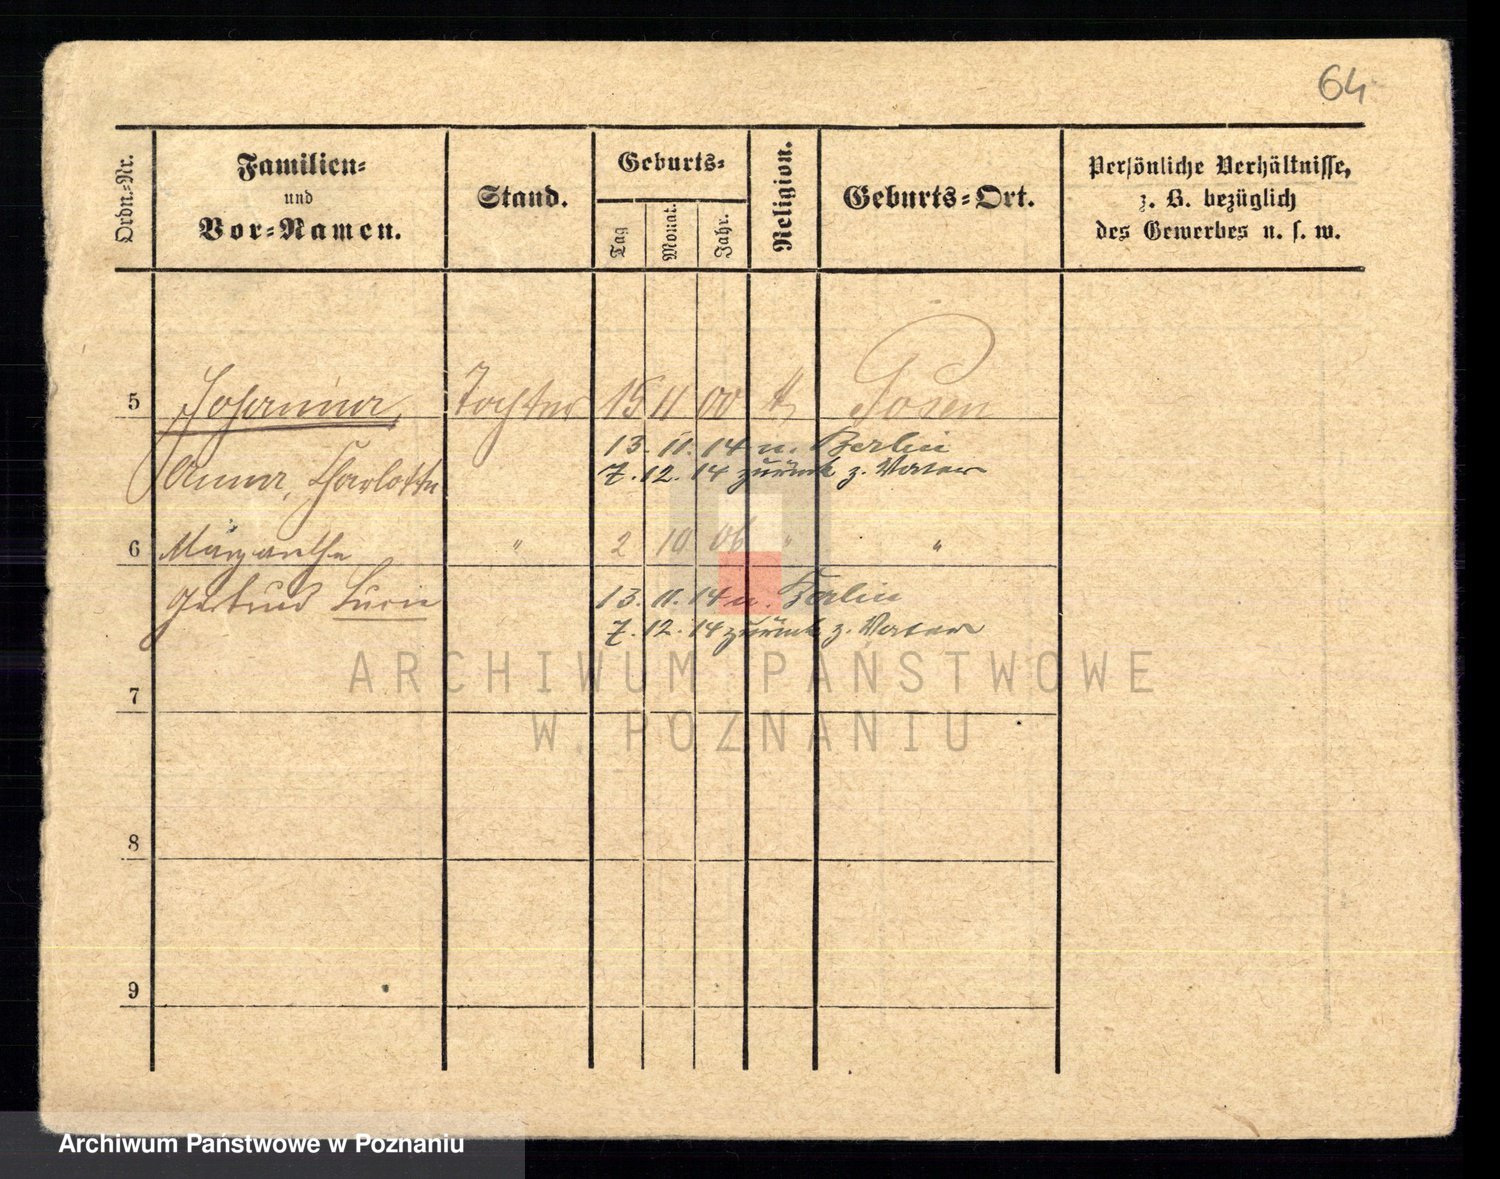 64
Ordn.-Nr.
Familien-
und
Vor-Namen.
Stand.
Geburts-
Tag
Monat.
Jahr.
Religion.
Geburts-Ort.
Persönliche Verhältnisse,
z. B. bezüglich
des Gewerbes u. s. w.
5 Johanna, Tochter 15 11 00 Posen
13. 11. 14 n. Berlin
Anna, Charlotte 7. 12. 14 zurück z. Vater
6 Margarethe " 2 10 06 " "
Gertrud Lucie 13. 11. 14 n. Berlin
7. 12. 14 zurück z. Vater
ARCHIWUM PAŃSTWOWE
7
W POZNANIU
8
9
Archiwum Państwowe w Poznaniu